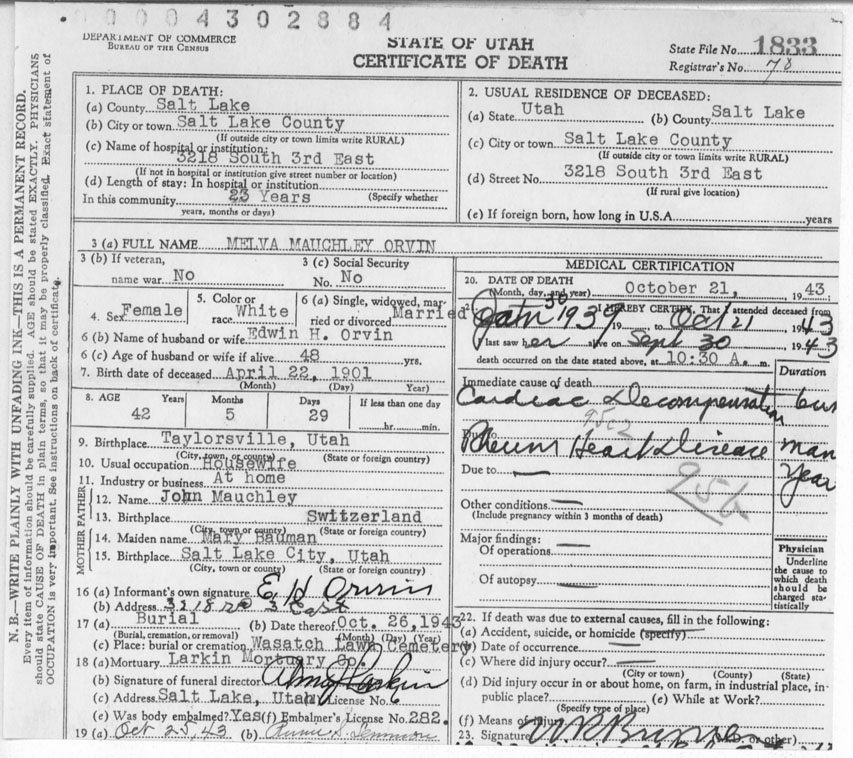 00004302884
DEPARTMENT OF COMMERCE
BUREAU OF THE CENSUS
STATE OF UTAH
CERTIFICATE OF DEATH
State File No. 1833
Registrar's No. 78
N. B.—WRITE PLAINLY WITH UNFADING INK—THIS IS A PERMANENT RECORD.
Every item of information should be carefully supplied. AGE should be stated EXACTLY. PHYSICIANS
should state CAUSE OF DEATH in plain terms, so that it may be properly classified. Exact statement of
OCCUPATION is very important. See instructions on back of certificate.
1. PLACE OF DEATH:
(a) County Salt Lake
(b) City or town Salt Lake County
(If outside city or town limits write RURAL)
(c) Name of hospital or institution:
3218 South 3rd East
(If not in hospital or institution give street number or location)
(d) Length of stay: In hospital or institution
(Specify whether
In this community 23 Years
years, months or days)
2. USUAL RESIDENCE OF DECEASED:
(a) State Utah (b) County Salt Lake
(c) City or town Salt Lake County
(If outside city or town limits write RURAL)
(d) Street No. 3218 South 3rd East
(If rural give location)
(e) If foreign born, how long in U.S.A. years
3 (a) FULL NAME MELVA MAUCHLEY ORVIN
3 (b) If veteran, name war No
3 (c) Social Security No. No
4. Sex Female
5. Color or race White
6 (a) Single, widowed, married or divorced Married
6 (b) Name of husband or wife Edwin H. Orvin
6 (c) Age of husband or wife if alive 48 yrs.
7. Birth date of deceased April 22, 1901
(Month) (Day) Year)
8. AGE Years Months Days If less than one day
42 5 29 hr. min.
9. Birthplace Taylorsville, Utah
(City, town, or county) (State or foreign country)
10. Usual occupation Housewife
11. Industry or business At home
FATHER
12. Name John Mauchley
13. Birthplace Switzerland
(City, town or county) (State or foreign country)
MOTHER
14. Maiden name Mary Bauman
15. Birthplace Salt Lake City, Utah
(City, town, or county) (State or foreign country)
16 (a) Informant's own signature E H Orvin
(b) Address 3218 So 3 East
17 (a) Burial (b) Date thereof Oct. 26, 1943
(Burial, cremation, or removal) (Month) (Day) (Year)
(c) Place: burial or cremation Wasatch Lawn Cemetery
18 (a) Mortuary Larkin Mortuary Co.
(b) Signature of funeral director Larkin
(c) Address Salt Lake, Utah License No. 6
(e) Was body embalmed? Yes (f) Embalmer's License No. 282.
19 (a) Oct 25, 43 (b)
MEDICAL CERTIFICATION
20. DATE OF DEATH
(Month, day, and year) October 21, 1943
I HEREBY CERTIFY, That I attended deceased from
Jan 30 1939 19 to Oct 21 1943
last saw her alive on Sept 30 1943
death occurred on the date stated above, at 10:30 A. m.
Duration
Immediate cause of death
Cardiac Decompensation 6 us
95c2
Due to
Rheum Heart Disease many
Due to — year
95b
Other conditions —
(Include pregnancy within 3 months of death)
Major findings:
Of operations —
Of autopsy —
Physician
Underline
the cause to
which death
should be
charged statistically
22. If death was due to external causes, fill in the following:
(a) Accident, suicide, or homicide (specify)
(b) Date of occurrence
(c) Where did injury occur?
(City or town) (County) (State)
(d) Did injury occur in or about home, on farm, in industrial place, in
public place? (e) While at Work?
(Specify type of place)
(f) Means of injury
23. Signature (M.D. or other)